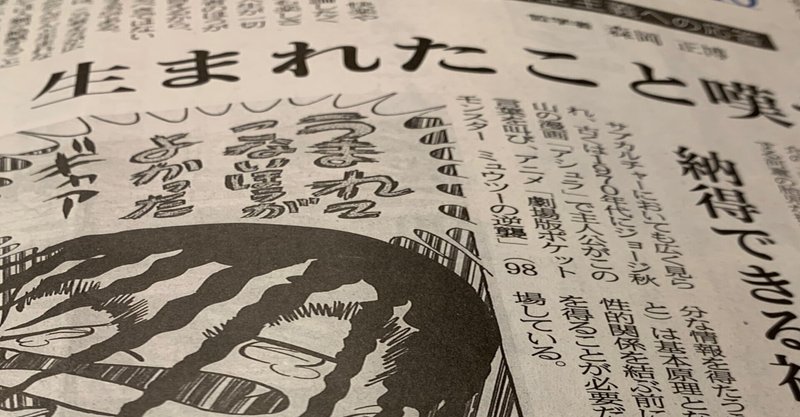 主義への応答
哲学者 森岡 正博
生まれたこと嘆
納得できる
サブカルチャーにおいても広く見ら
1970年代にジョージ秋
山の漫画「アシュラ」で主人公がこの
言葉を叫び、アニメ「劇場版ポケット
モンスター ミュウツーの逆襲」(98
分な情報を得たう
と)は基本原理とな
性的関係を結ぶ前に
を得ることが必要だ
場している。
うまれて
こないほうが
よかった